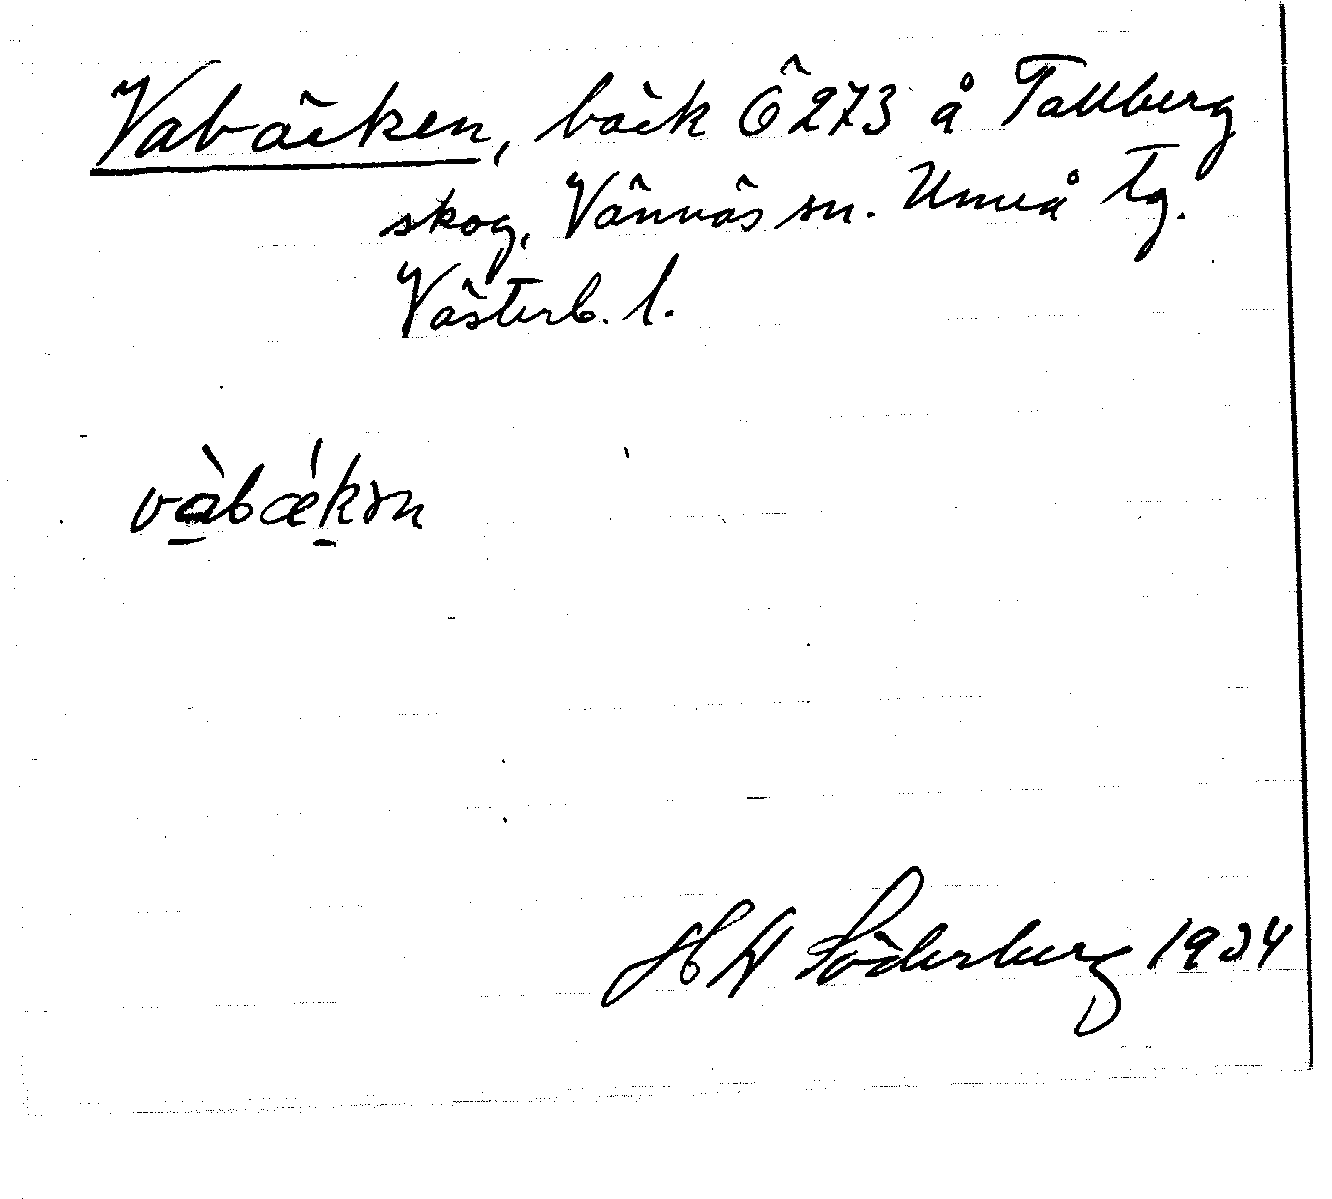 Vabäcken, bäck Ö 273 å Tallberg
skog, Vännäs sn. Umeå tg.
Västerb. l.
và̱bǽḵən
H W Söderberg 1934